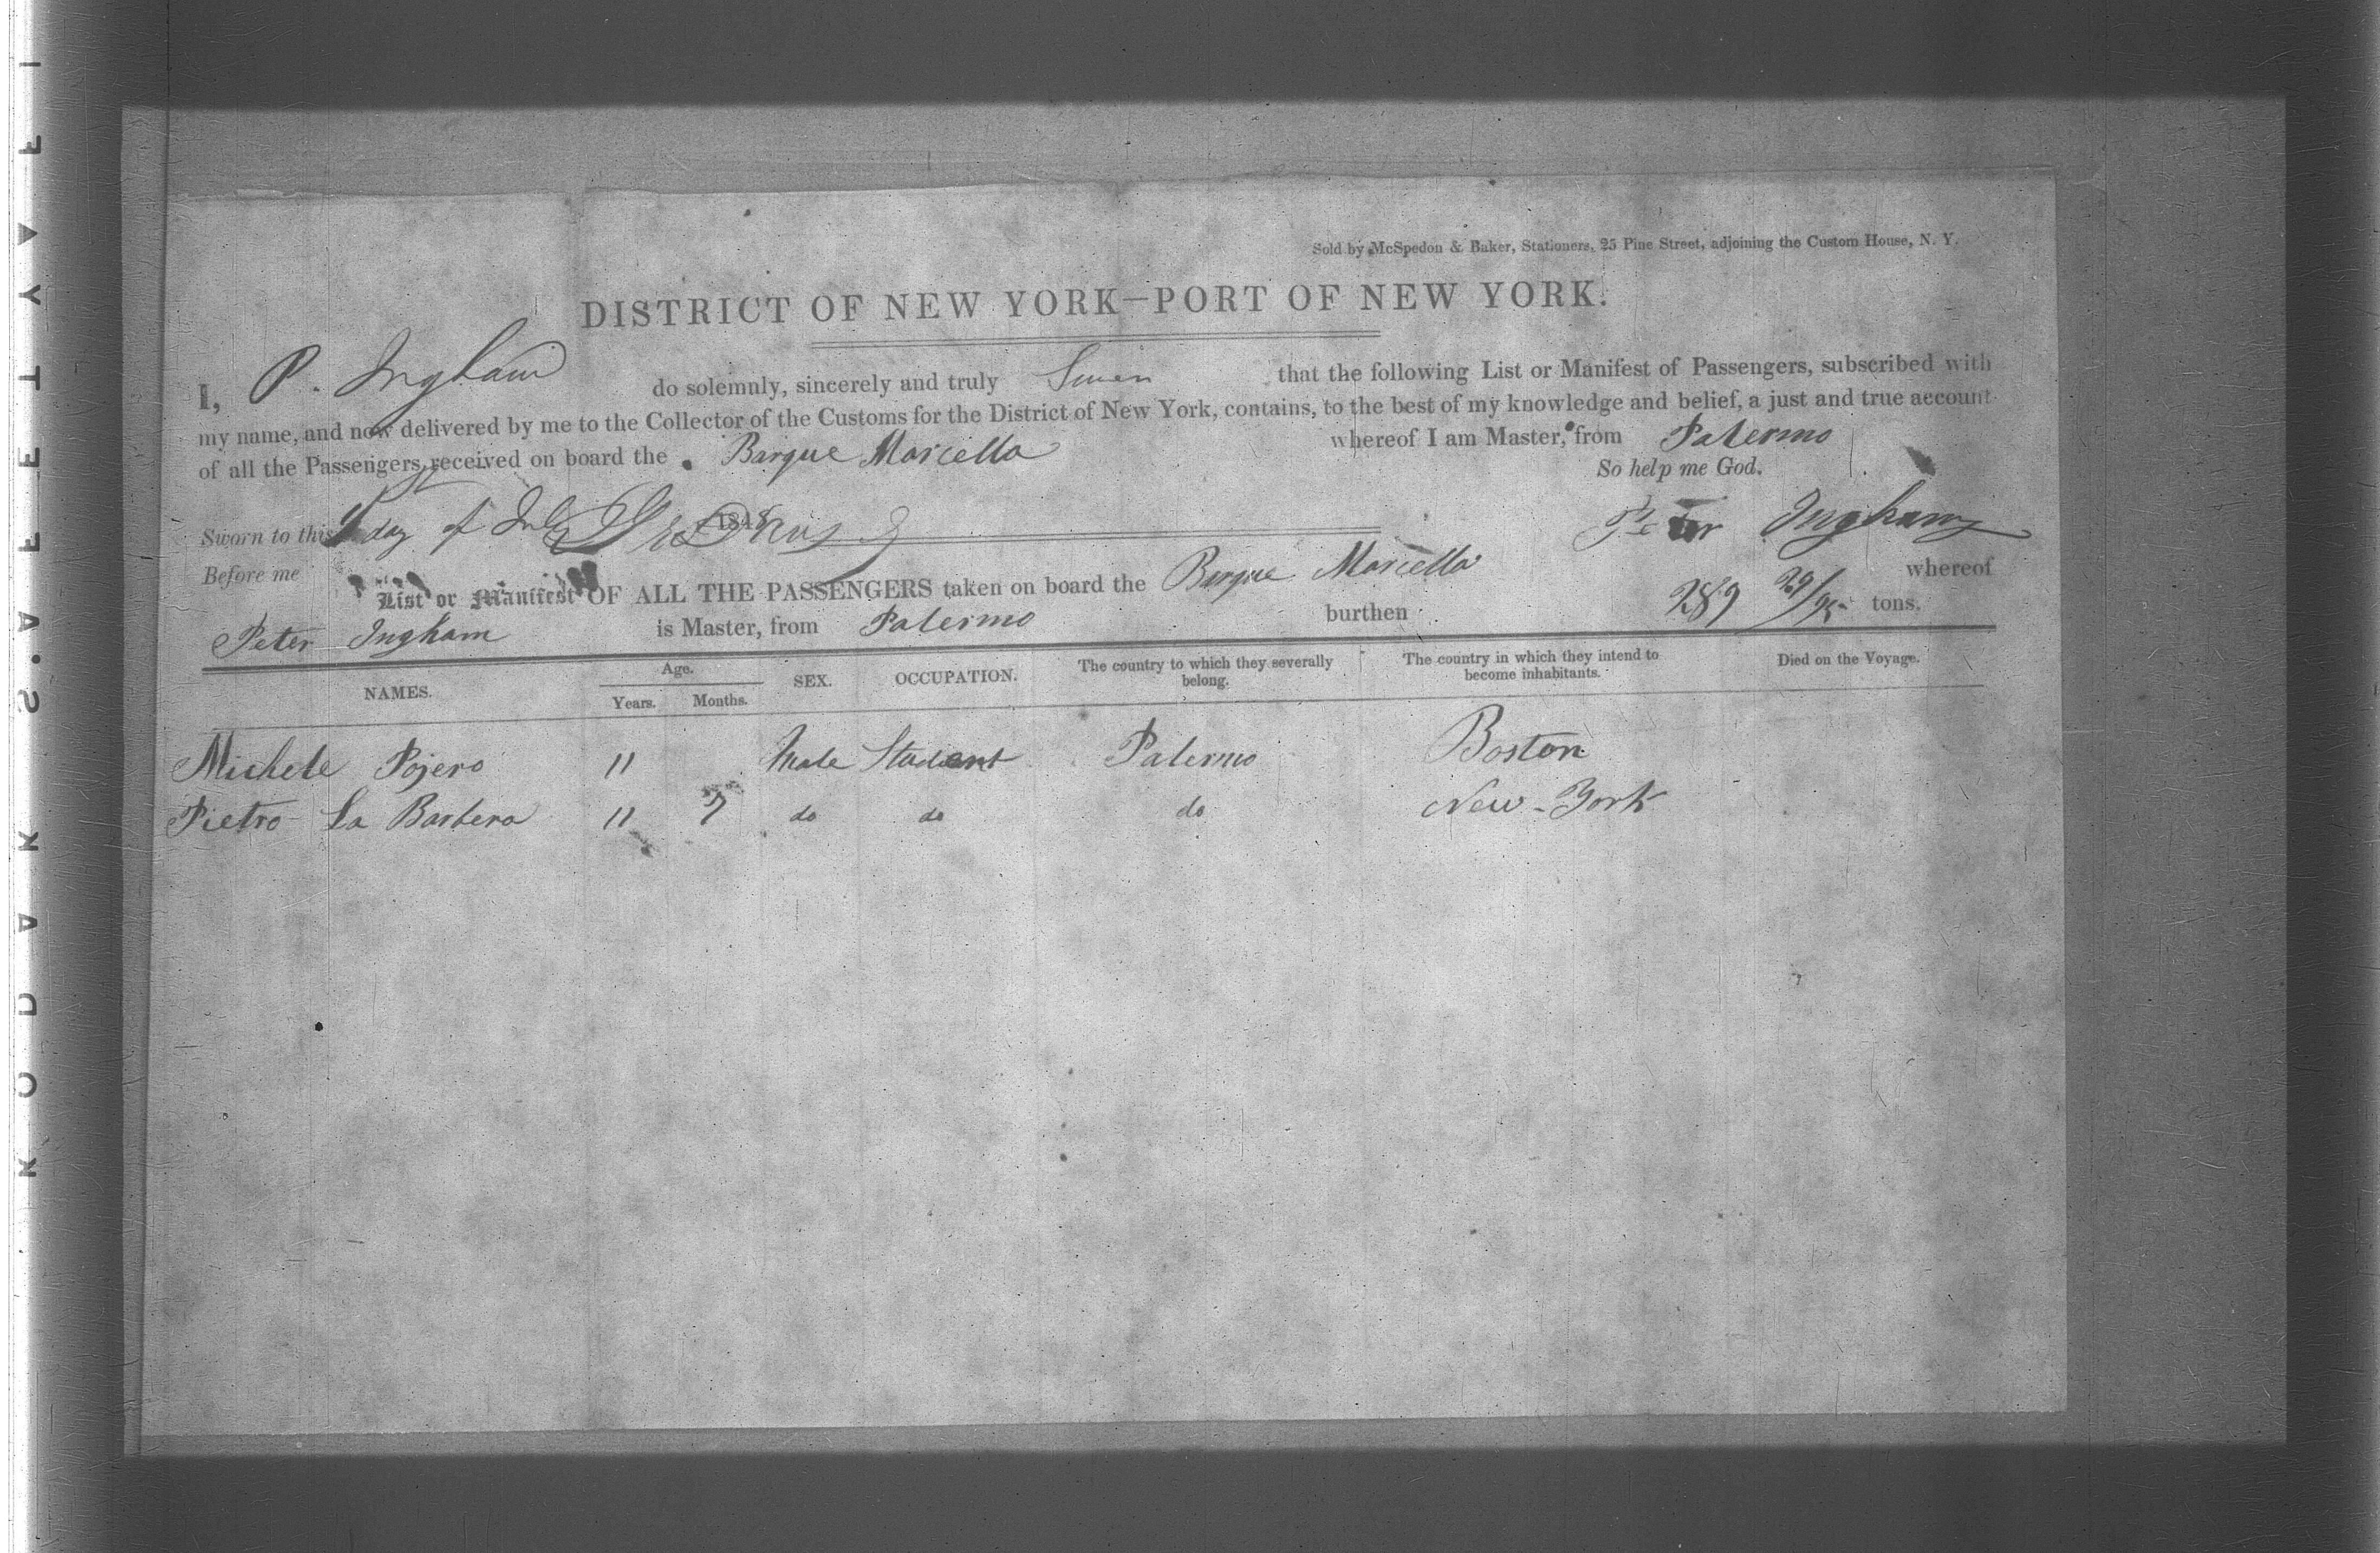 Sold by McSpedon & Baker, Stationers, 25 Pine Street, adjoining the Custom House, N. Y.
DISTRICT OF NEW YORK—PORT OF NEW YORK.
I, P. Ingham do solemnly, sincerely and truly Swear that the following List or Manifest of Passengers, subscribed with
my name, and now delivered by me to the Collector of the Customs for the District of New York, contains, to the best of my knowledge and belief, a just and true account
of all the Passengers received on board the Barque Marcella whereof I am Master, from Palermo
So help me God.
Sworn to this day of July 184 Peter Ingham
Before me
List or Manifest OF ALL THE PASSENGERS taken on board the Barque Marcella whereof
Peter Ingham is Master, from Palermo burthen 289 29/95 tons.
NAMES. Age. Years. Months. SEX. OCCUPATION. The country to which they severally belong. The country in which they intend to become inhabitants. Died on the Voyage.
Michele Pojero 11 Male Student Palermo Boston
Pietro La Barbera 11 7 do do do New-York
KODAK SAFETY FI